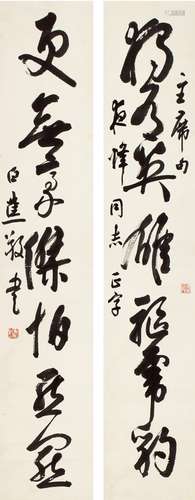 主席句
独有英雄驱虎豹
夜烽同志正字
更无豪杰怕熊罴
白蕉敬书